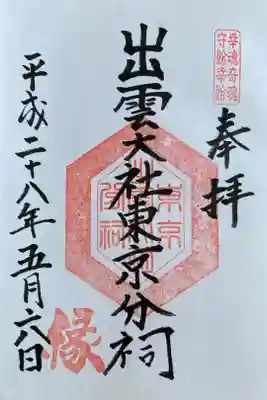 奉拝
幸魂奇魂
守給幸給
出雲大社東京分祠
平成二十八年五月六日
縁